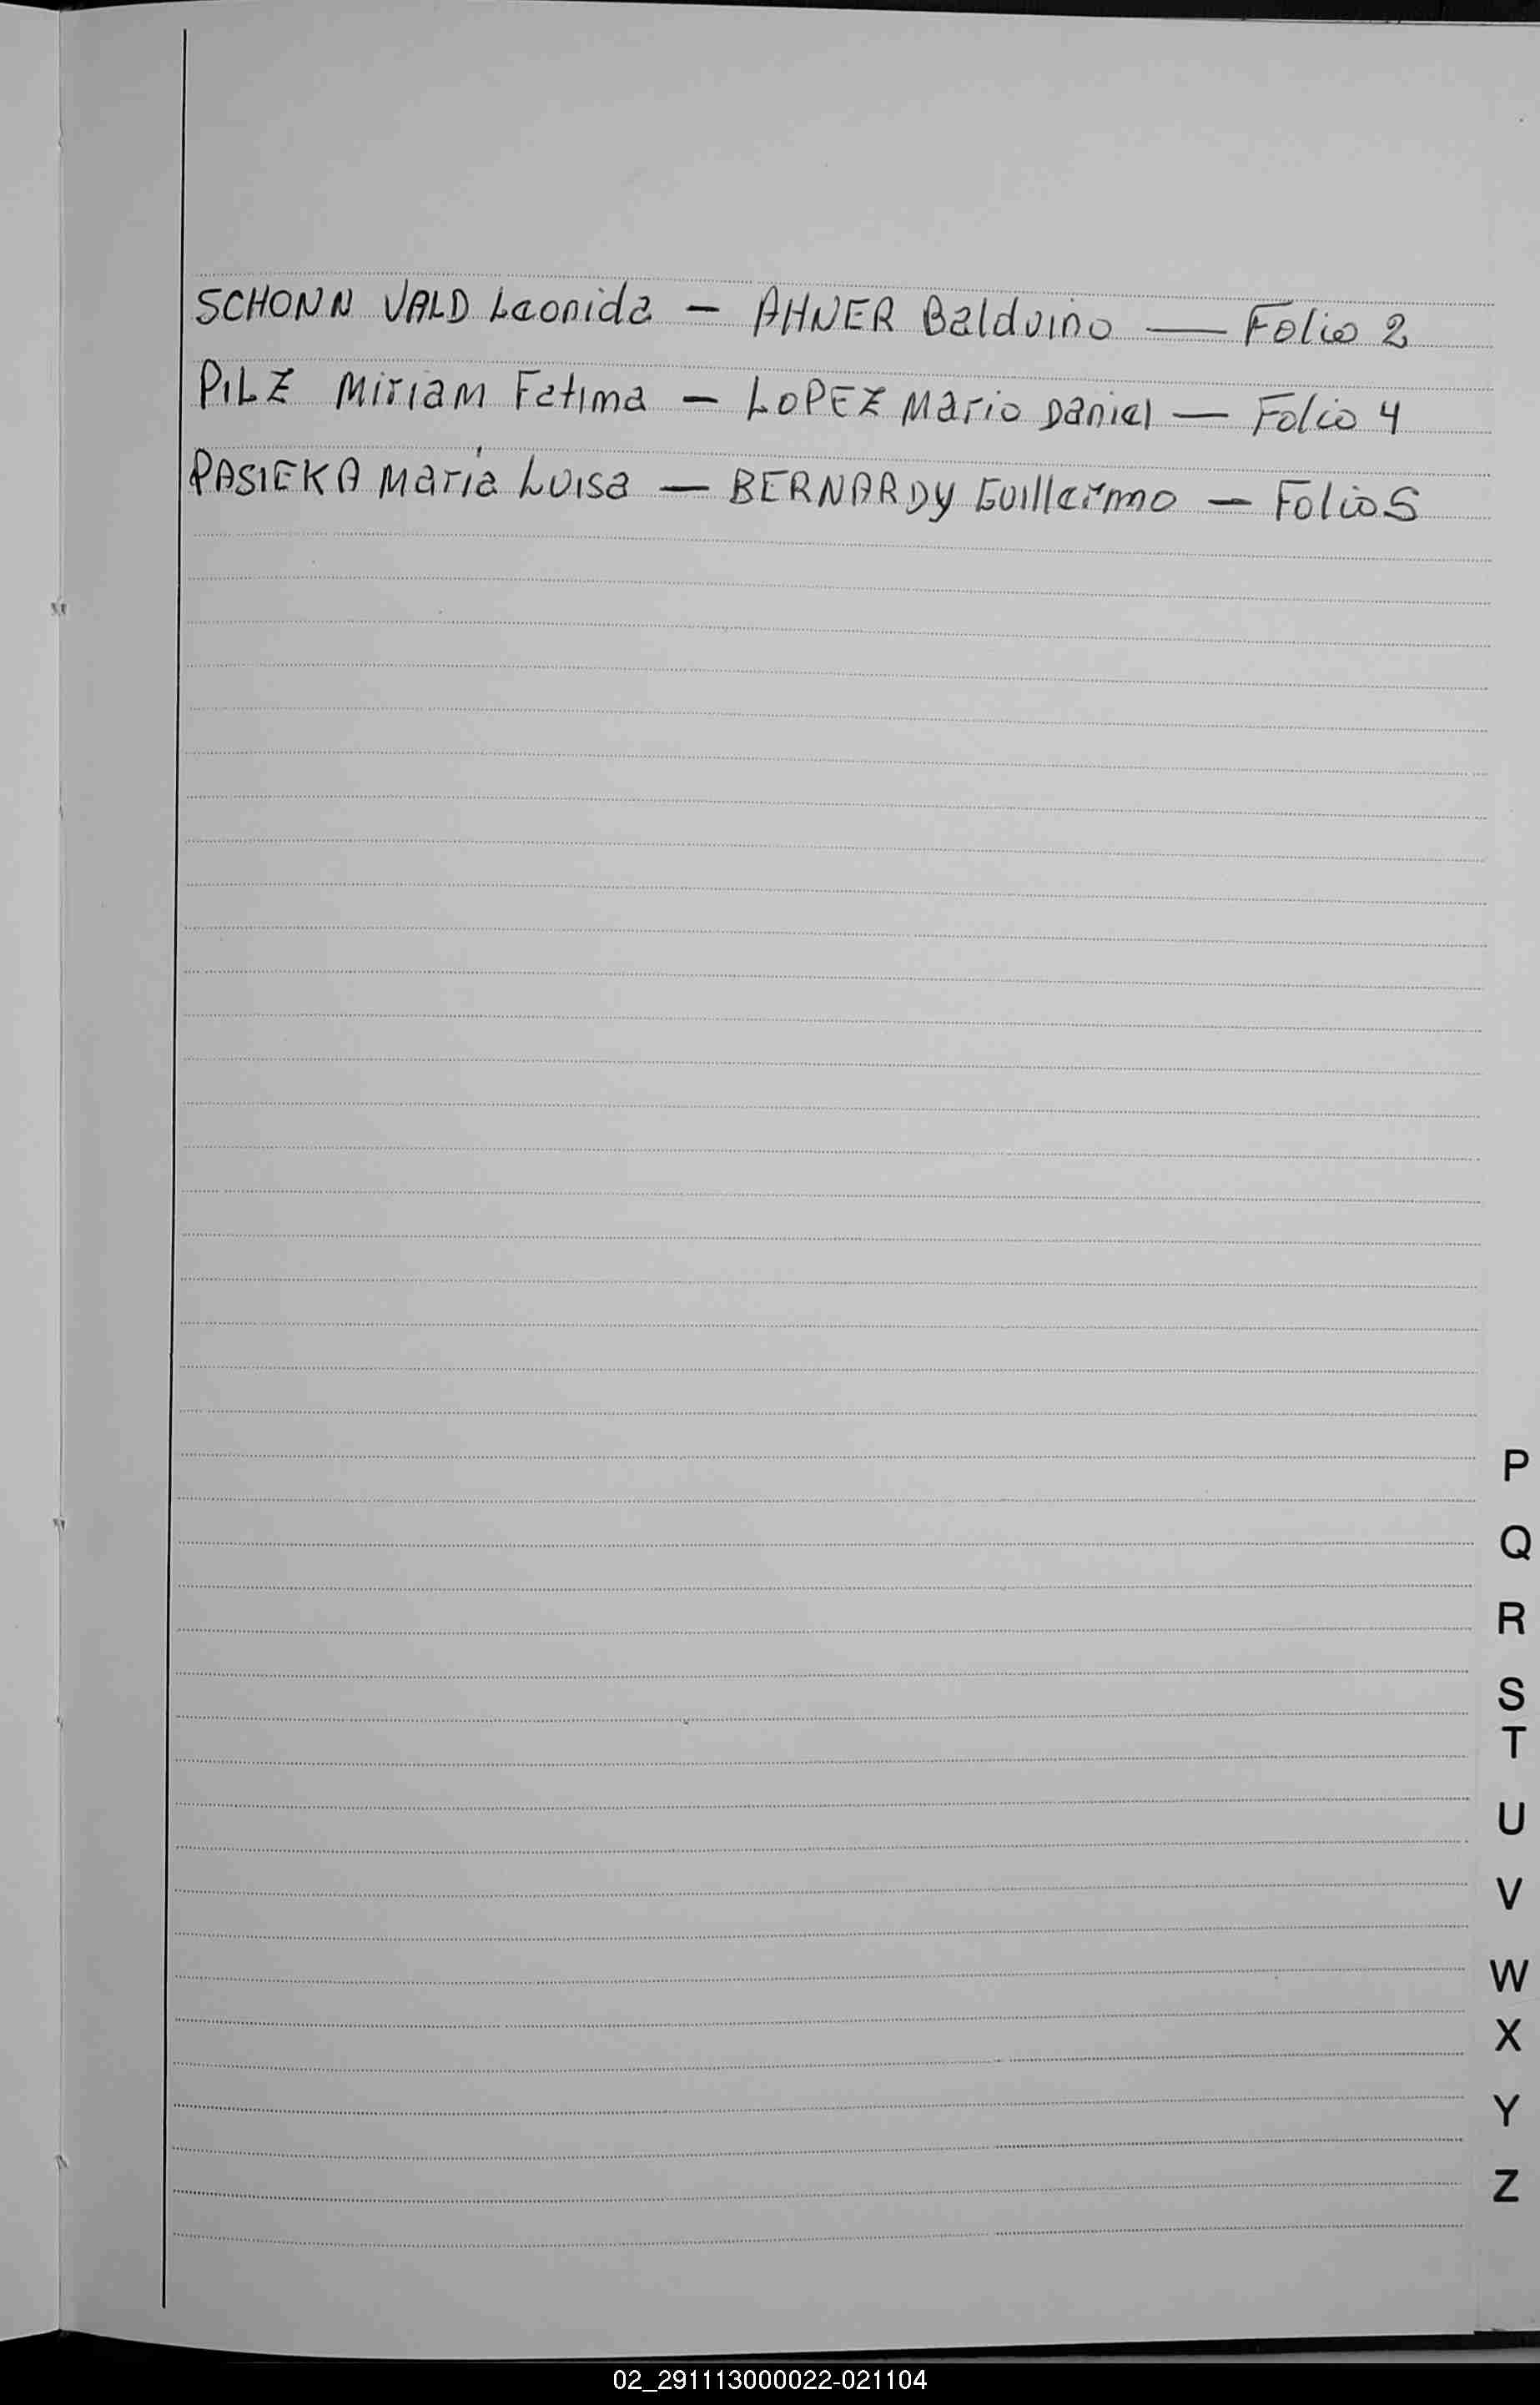 SCHONN VALD Leonida — AHNER Balduino — Folio 2
PILZ Miriam Fatima — LOPEZ Mario Daniel — Folio 4
PASIEKA María Luisa — BERNARDY Guillermo — Folio 5
P
Q
R
S
T
U
V
W
X
Y
Z
02_291113000022-021104